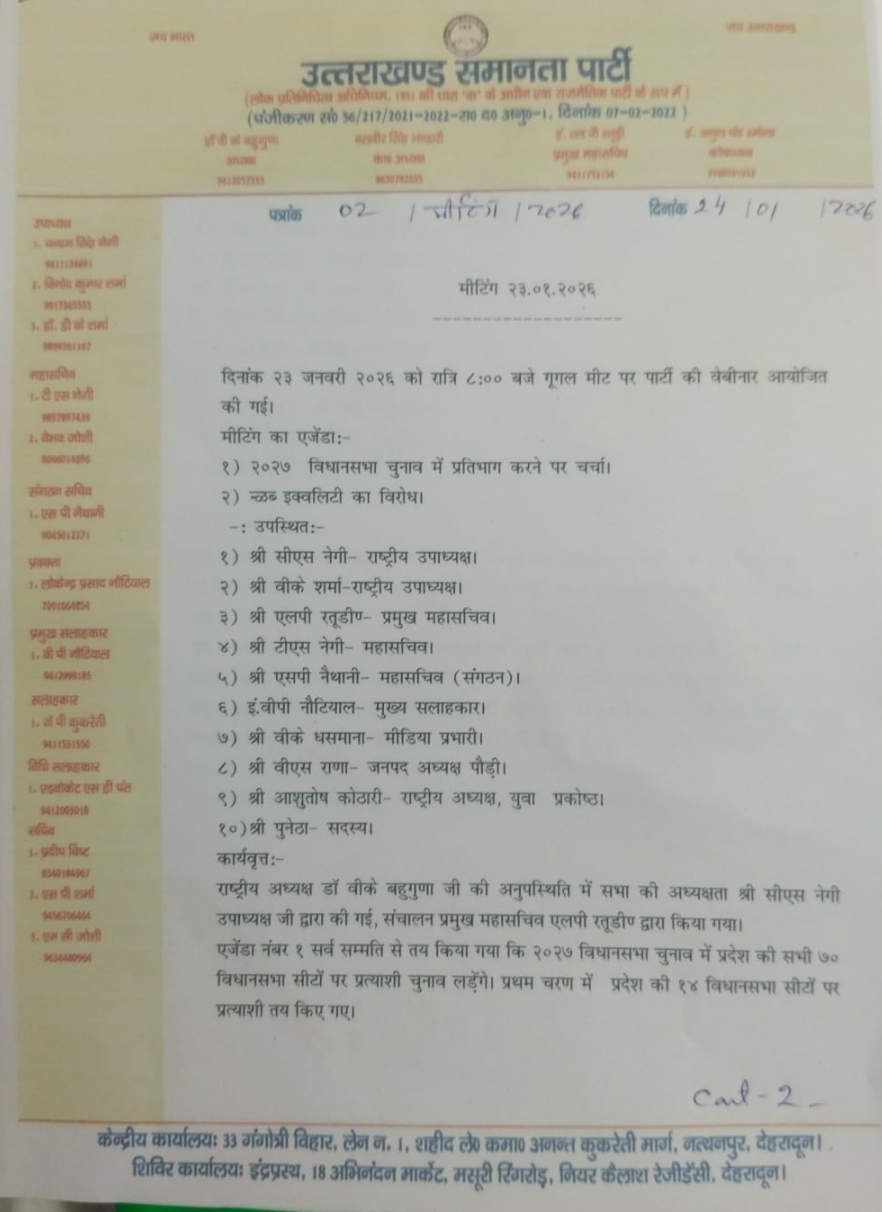 जय भारत
जय उत्तराखण्ड
उत्तराखण्ड समानता पार्टी
(लोक प्रतिनिधित्व अधिनियम, 1951 की धारा "क" के अधीन एक राजनैतिक पार्टी के रूप में)
(पंजीकरण सं0 56/217/2021-2022-रा0 द0 अनु0-1, दिनांक 07-02-2022)
डॉ वी के बहुगुणा
अध्यक्ष
बलवीर सिंह भण्डारी
अध्यक्ष
इं. एल पी रतूड़ी
प्रमुख महासचिव
9411753154
कोषाध्यक्ष
पत्रांक 02 / मीटिंग / 2026 दिनांक 24 /01 /2026
उपाध्यक्ष
1. सिंह नेगी
2. विनोद कुमार शर्मा
3. डॉ. डी के शर्मा
महासचिव
1. टी एस नेगी
2. वैभव जोशी
संगठन सचिव
1. एस पी नैथानी
प्रवक्ता
1. लोकेन्द्र प्रसाद नौटियाल
प्रमुख सलाहकार
1. वी पी नौटियाल
सलाहकार
1. जे पी कुकरेती
विधि सलाहकार
1. एडवोकेट एस डी पंत
सचिव
1. प्रदीप बिष्ट
2. एस पी शर्मा
3. एम सी जोशी
मीटिंग २३.०१.२०२६
दिनांक २३ जनवरी २०२६ को रात्रि ८:०० बजे गूगल मीट पर पार्टी की वेबीनार आयोजित
की गई।
मीटिंग का एजेंडा:-
१) २०२७ विधानसभा चुनाव में प्रतिभाग करने पर चर्चा।
२) न्ळब्द इक्वलिटी का विरोध।
-: उपस्थित:-
१) श्री सीएस नेगी- राष्ट्रीय उपाध्यक्ष।
२) श्री वीके शर्मा-राष्ट्रीय उपाध्यक्ष।
३) श्री एलपी रतूडी़ण- प्रमुख महासचिव।
४) श्री टीएस नेगी- महासचिव।
५) श्री एसपी नैथानी- महासचिव (संगठन)।
६) इं.वीपी नौटियाल- मुख्य सलाहकार।
७) श्री वीके धसमाना- मीडिया प्रभारी।
८) श्री वीएस राणा- जनपद अध्यक्ष पौड़ी।
९) श्री आशुतोष कोठारी- राष्ट्रीय अध्यक्ष, युवा प्रकोष्ठ।
१०)श्री पुनेठा- सदस्य।
कार्यवृत्त:-
राष्ट्रीय अध्यक्ष डॉ वीके बहुगुणा जी की अनुपस्थिति में सभा की अध्यक्षता श्री सीएस नेगी
उपाध्यक्ष जी द्वारा की गई, संचालन प्रमुख महासचिव एलपी रतूडी़ण द्वारा किया गया।
एजेंडा नंबर १ सर्व सम्मति से तय किया गया कि २०२७ विधानसभा चुनाव में प्रदेश की सभी ७०
विधानसभा सीटों पर प्रत्याशी चुनाव लड़ेंगे। प्रथम चरण में प्रदेश की १४ विधानसभा सीटों पर
प्रत्याशी तय किए गए।
Cont - 2 -
केन्द्रीय कार्यालयः 33 गंगोत्री विहार, लेन न. 1, शहीद ले0 कमा0 अनन्त कुकरेती मार्ग, नत्थनपुर, देहरादून।
शिविर कार्यालयः इंद्रप्रस्थ, 18 अभिनंदन मार्केट, मसूरी रिंगरोड़, नियर कैलाश रेजीडेंसी, देहरादून।